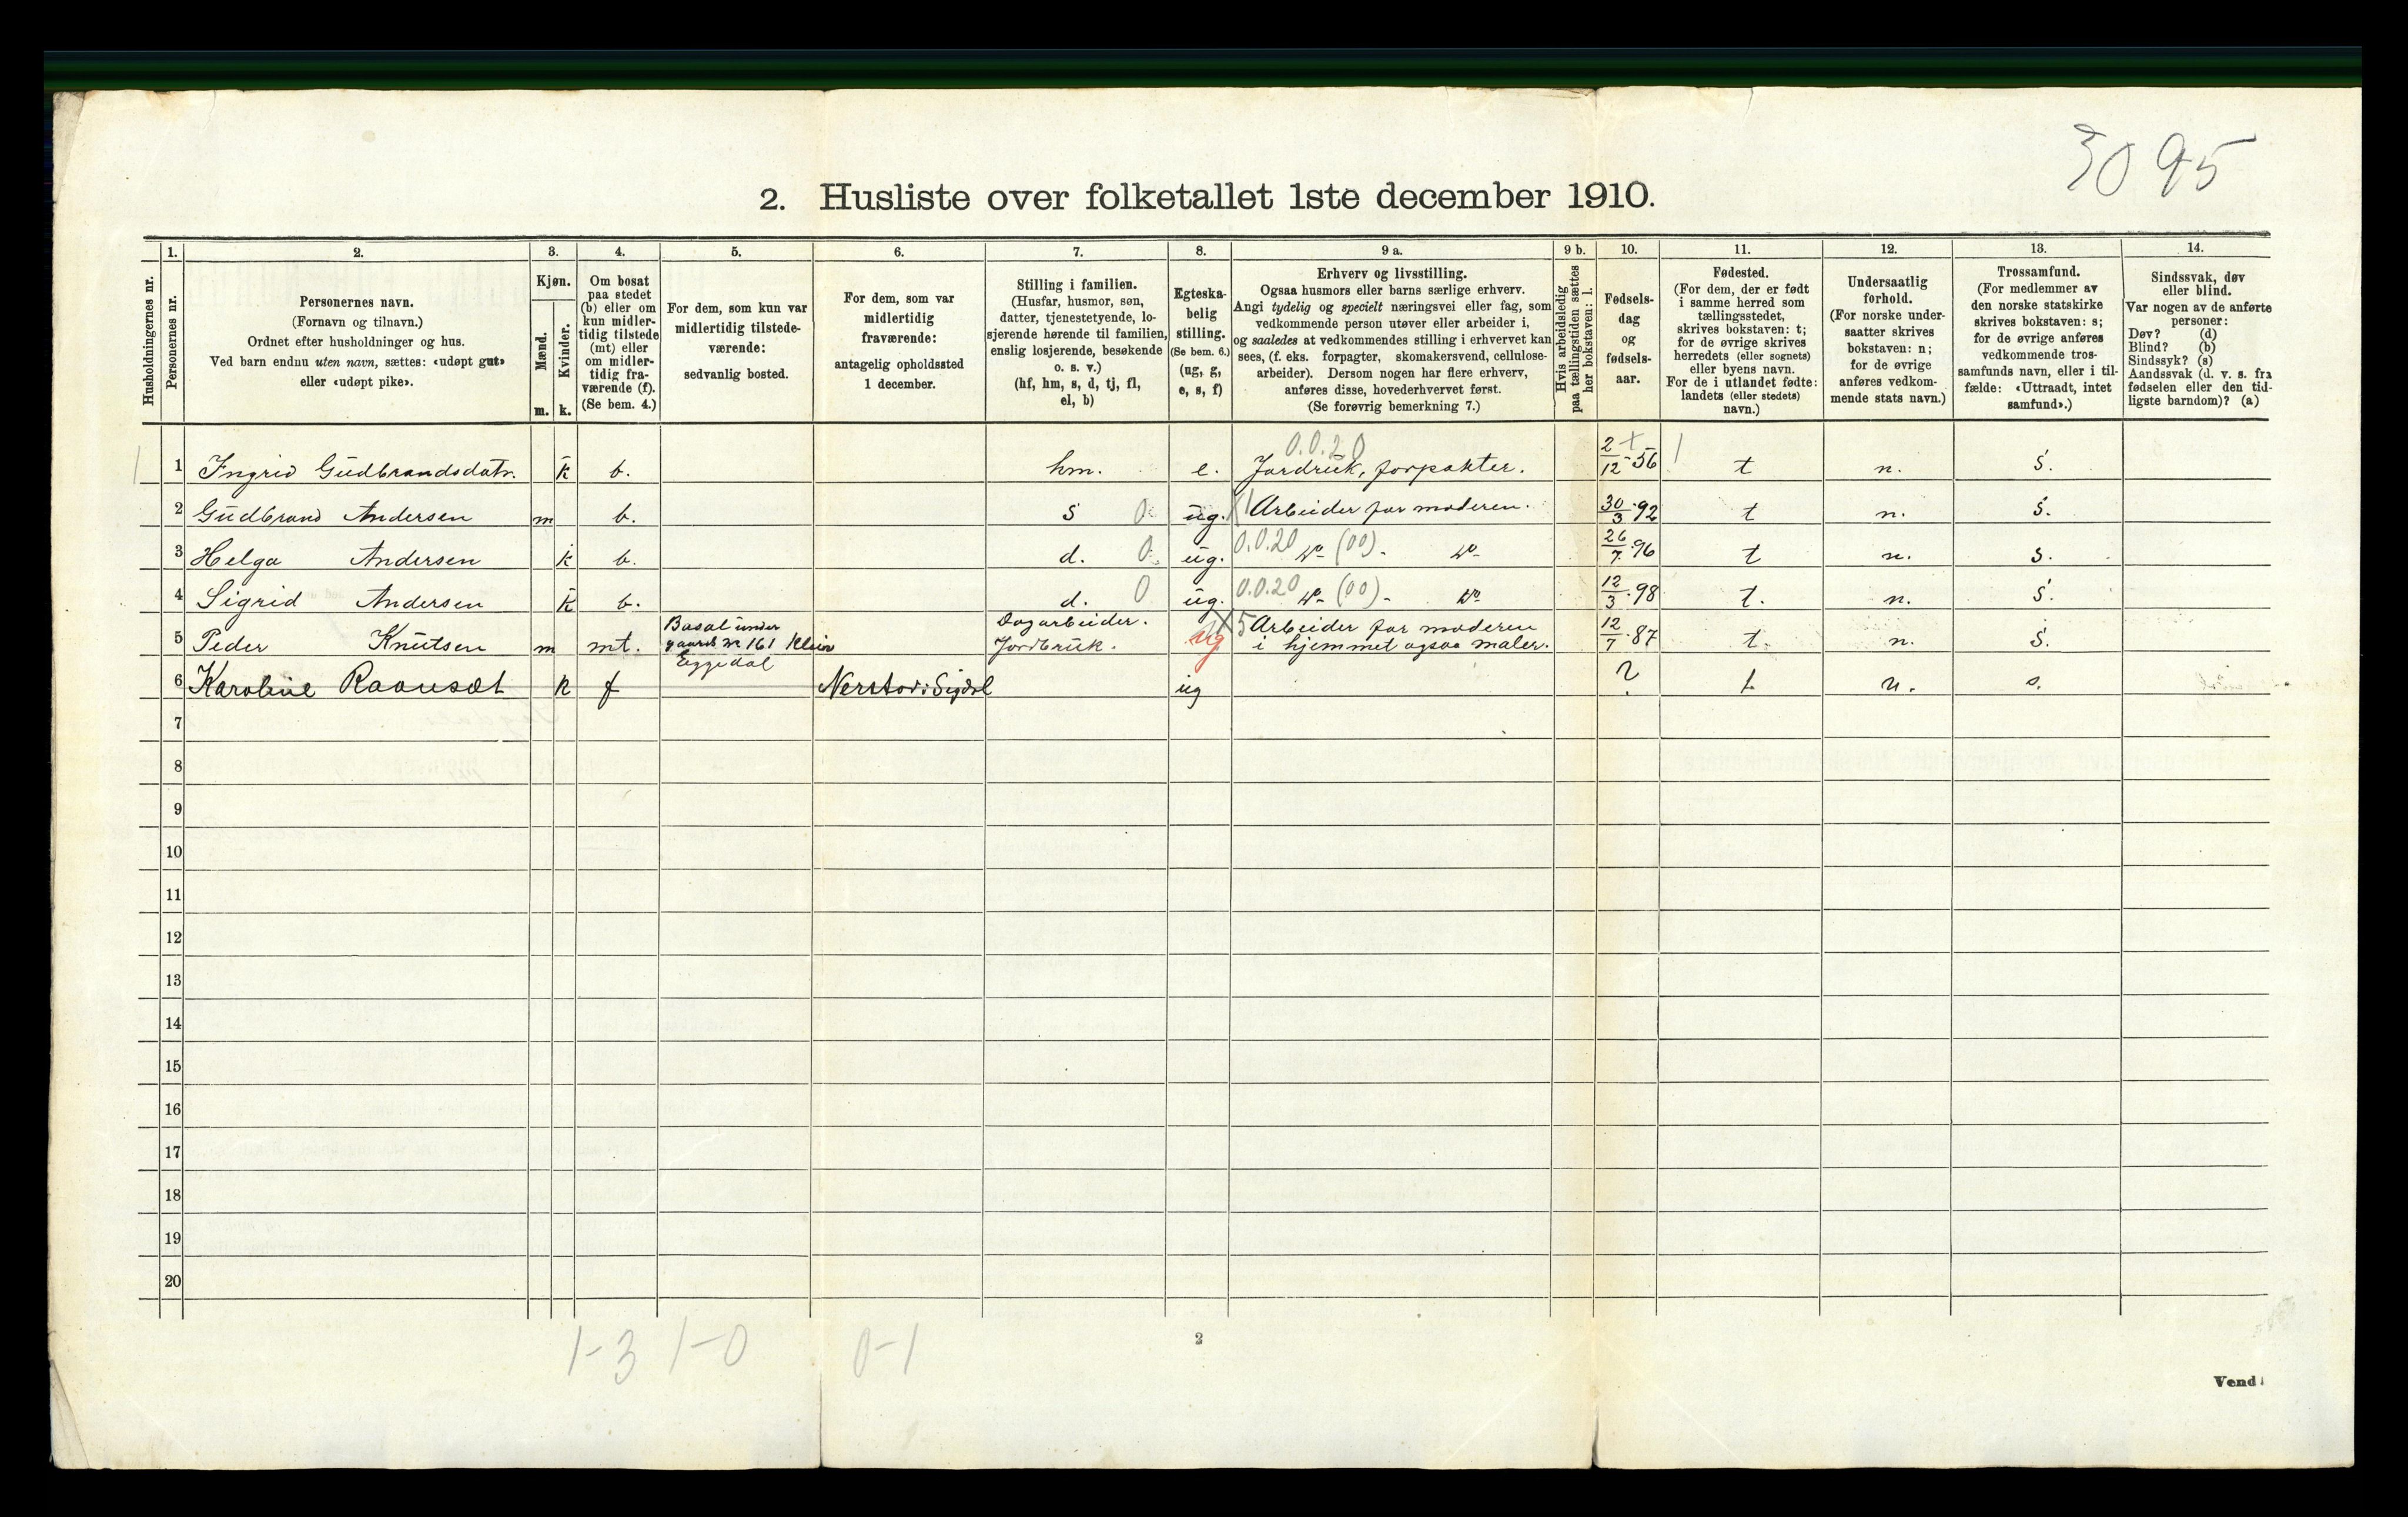 3095
2. Husliste over folketallet 1ste december 1910.
Husholdningernes nr.
1.
Personernes nr.
2.
Personernes navn.
(Fornavn og tilnavn.)
Ordnet efter husholdninger og hus.
Ved barn endnu uten navn, sættes: «udøpt gut»
eller «udøpt pike».
3.
Kjøn.
Mænd.
m.
Kvinder.
k.
4.
Om bosat
paa stedet
(b) eller om
kun midler-
tidig tilstede
(mt) eller
om midler-
tidig fra-
værende (f).
(Se bem. 4.)
5.
For dem, som kun var
midlertidig tilstede-
værende:
sedvanlig bosted.
6.
For dem, som var
midlertidig
fraværende:
antagelig opholdssted
1 december.
7.
Stilling i familien.
(Husfar, husmor, søn,
datter, tjenestetyende, lo-
sjerende hørende til familien,
enslig losjerende, besøkende
o. s. v.)
(hf, hm, s, d, tj, fl,
el, b)
8.
Egteska-
belig
stilling.
(Se bem. 6.)
(ug, g,
e, s, f)
9 a.
Erhverv og livsstilling.
Ogsaa husmors eller barns særlige erhverv.
Angi tydelig og specielt næringsvei eller fag, som
vedkommende person utøver eller arbeider i,
og saaledes at vedkommendes stilling i erhvervet kan
sees, (f. eks. forpagter, skomakersvend, cellulose-
arbeider). Dersom nogen har flere erhverv,
anføres disse, hovederhvervet først.
(Se forøvrig bemerkning 7.)
9 b.
Hvis arbeidsledig
paa tællingstiden sættes
her bokstaven: l.
10.
Fødsels-
dag
og
fødsels-
aar.
11.
Fødested.
(For dem, der er født
i samme herred som
tællingsstedet,
skrives bokstaven: t;
for de øvrige skrives
herredets (eller sognets)
eller byens navn.
For de i utlandet fødte:
landets (eller stedets)
navn.)
12.
Undersaatlig
forhold.
(For norske under-
saatter skrives
bokstaven: n;
for de øvrige
anføres vedkom-
mende stats navn.)
13.
Trossamfund.
(For medlemmer av
den norske statskirke
skrives bokstaven: s;
for de øvrige anføres
vedkommende tros-
samfunds navn, eller i til-
fælde: «Uttraadt, intet
samfund».)
14.
Sindssvak, døv
eller blind.
Var nogen av de anførte
personer:
Døv? (d)
Blind? (b)
Sindssyk? (s)
Aandssvak (d. v. s. fra
fødselen eller den tid-
ligste barndom)? (a)
0.0.20
1 1 Ingrid Gudbrandsdatr. k b. hm. e. Jordruk, forpakter. 2/12-56 t n. s.
2 Gudbrand Andersen m b. s 0 ug. Arbeider for moderen. 30/3.92 t n. s.
3 Helga Andersen k b. d. 0 ug. 0.0.20 do (00) - do 26/7.96 t n. s.
4 Sigrid Andersen k b. d. 0 ug. 0.0.20 do (00) - do 12/3.98 t. n. s.
5 Peder Knutsen m mt. Bosat under
gaards Nr 161
Eggedal
Dagarbeider.
Jordbruk.
ug 5 Arbeider for moderen
i hjemmet ogsaa maler.
12/7.87 t. n. s.
6 Karoline k f Sigdal ug ? t. n. s.
7
8
9
10
11
12
13
14
15
16
17
18
19
20
1-3 1-0 0-1
2
Vend!